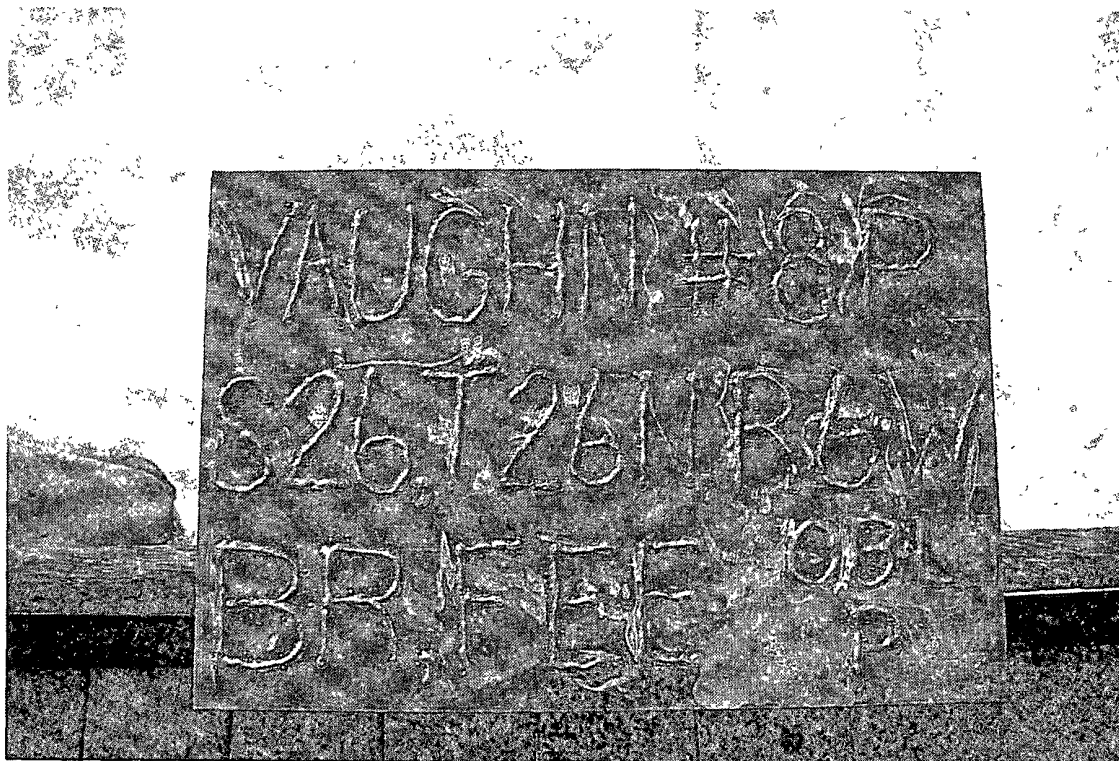 VAUGHN #8 P
S26 T26N R6W
BR FEE
P